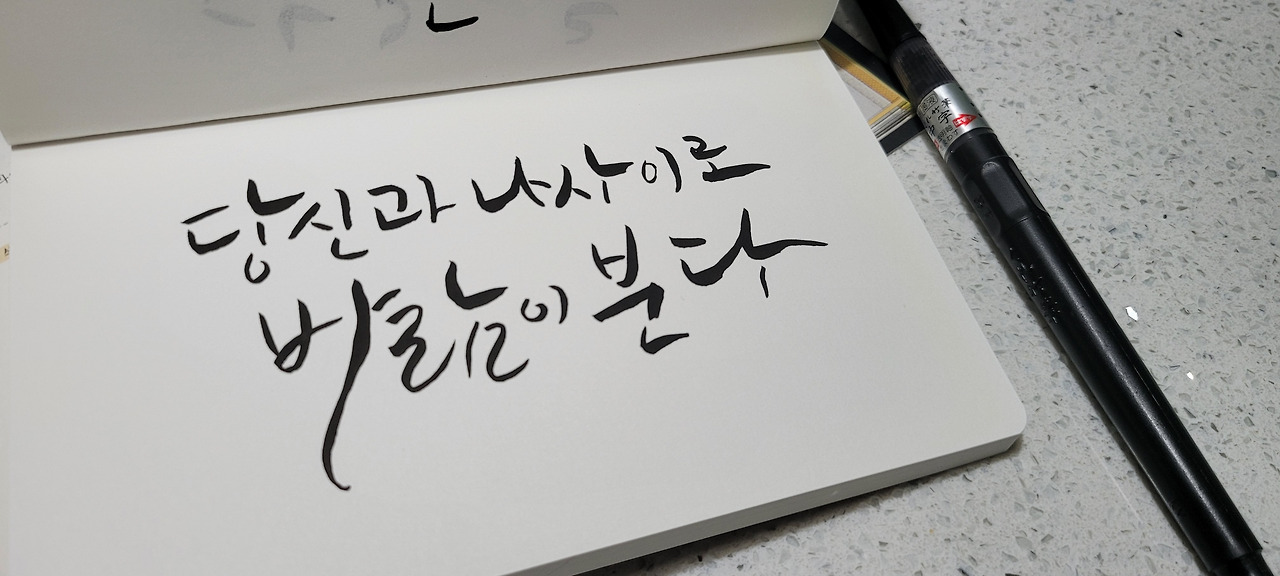 당신과 나 사이로
바람이 분다